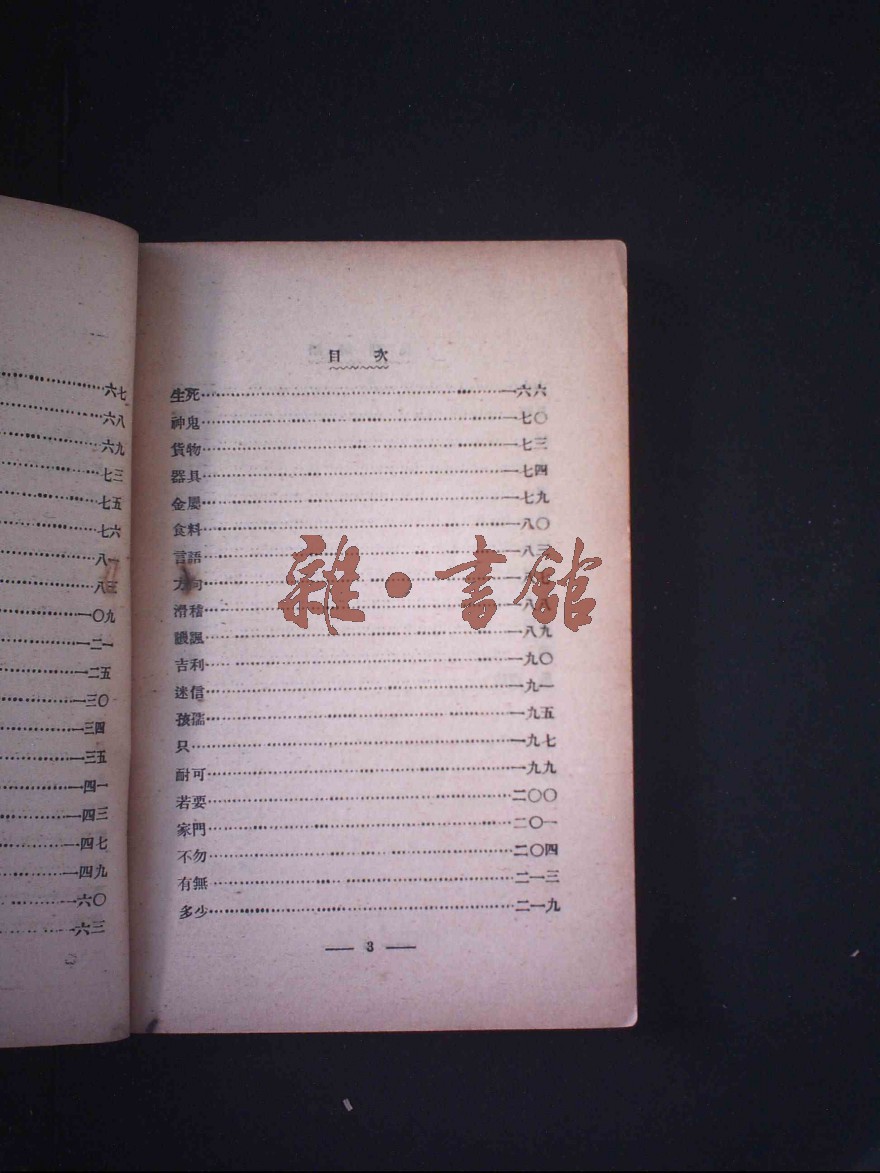 六七
六八
六九
七三
七五
七六
八一
八三
一〇九
一二一
一二五
一三〇
一三四
一三五
一四一
一四三
一四七
一四九
一六〇
一六三
目 次
生死……一六六
神鬼……一七〇
貨物……一七三
器具……一七四
金屬……一七九
食料……一八〇
言語……一八三
方向……
滑稽……一八八
譏諷……一八九
吉利……一九〇
迷信……一九一
孩孺……一九五
只……一九七
耐可……一九九
若要……二〇〇
家門……二〇一
不勿……二〇四
有無……二一三
多少……二一九
— 3 —
雜·書館